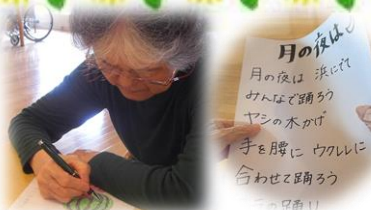 月の夜は
月の夜は 浜にでて
みんなで踊ろう
ヤシの木かげ
手を腰に ウクレレに
合わせて踊ろう
の踊り